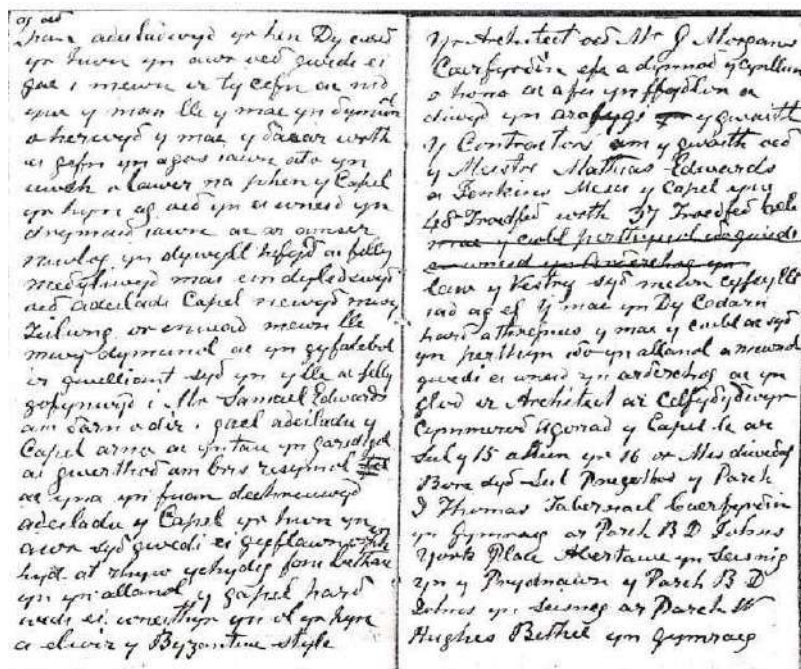 as oed
pan adeiladwyd yr hen Dy cwrd
yr hwn yn awr oed gwedi ei
gae i mewn ir ty cefn ac nid
yw y man lle y mae yn dymunol
oherwyd y mae y daear wrth
ei gefn yn agos iawn ato yn
uwch o lawer na phen y Capel
yr hyn ag oed yn ei wneid yn
drymaid iawn ac ar amser
niwlog yn dywyll hefyd ac felly
medyliwyd mai ein dyledswyd
oed adeiladi Capel newyd mwy
Teilwng or enwad mewn lle
mwy dymunol ac yn gyfatebol
ir gwelliant syd yn y lle ac felly
gofynwyd i Mr Samuel Edwards
am darn o dir i gael adeiladu y
Capel arno ac yntau yn garedigol
ai gwerthod am bris resymol
ac yna yn fuan dechreuwyd
adeiladu y Capel yr hwn yn
awr syd gwedi ei gyfflawni
hyd at rhyw ychydig
yn yn allanol y gapel hard
wedi ei wneithyr yn ol yr hyn
a elwir y Byzantine style
Yr Architect oed Mr J Morgans
Caerfyrdin efe a dynnod y cynllun
o hono ac a fu yn ffydlon a
diwyd yn arolygs y gwaith
Y Contractors am y gwaith oed
y Meistri Mathias Edwards
a Jenkins Mesur y Capel yw
48 Troedfed wrth 37 Troedfed
mae y cwbl perthynol
law y Vestry syd mewn cysyllt
iad ag ef Y mae yn Dy Cadarn
hard a threfnus y mae y cwbl ac syd
yn perthyn ido yn allanol a mewnol
gwedi ei wneid yn arderchog ac yn
glod ir Architect ar Celfydydwyr
Cymmerwd Agoriad y Capel le ar
Sul y 15 a Llun yr 16 or Mis diwedaf
Bore Dyd Sul Pregethod y Parch
J Thomas Tabernacl Caerfyrdin
yn Gymraeg ar Parch B D Johns
York Place Abertawe yn Seisnig
Yn y Prydnawn y Parch B D
Johns yn Seisneg ar Parch W
Hughes Bethel yn Gymraeg